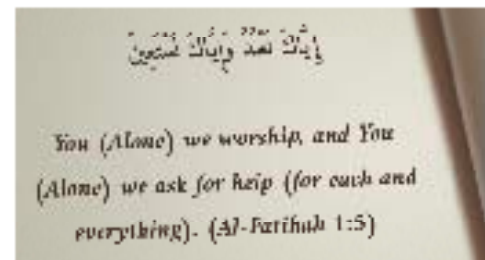 إِيَّاكَ نَعْبُدُ وَإِيَّاكَ نَسْتَعِينُ
You (Alone) we worship, and You
(Alone) we ask for help (for each and
everything). (Al-Fatihah 1:5)